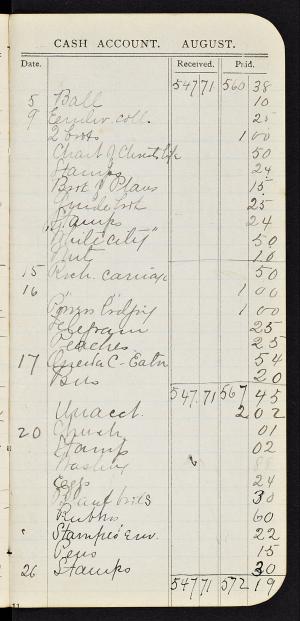 CASH ACCOUNT. AUGUST.
Date. Received. Paid.
547 71 560 38
5 Ball 10
9 coll. 25
2 books 1 00
Chart of Christ's life 50
Stamps 24
Book of Plans 15
Guide book 25
Stamps 24
50
10
15 Rock. carriage 50
16 1 00
1 00
Telegram 25
Peaches 25
17 54
Bus 20
547.71 567 45
Unacct. 2 02
20 Church 01
Stamp 02
Washing 88
Eggs 24
30
60
Stamped Env. 22
Pens 15
26 Stamps 30
547 71 572 19